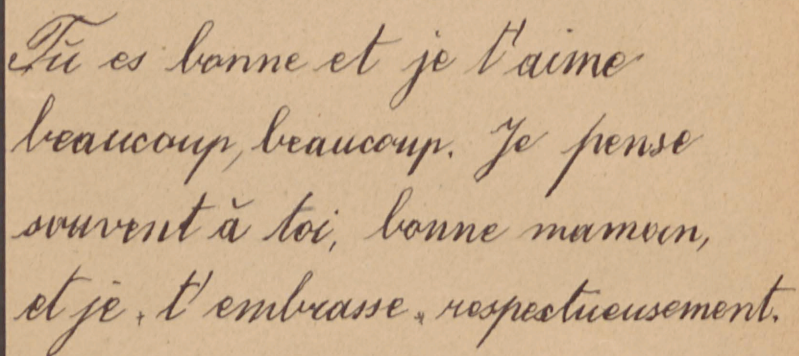 Tu es bonne et je t'aime
beaucoup, beaucoup. Je pense
souvent à toi, bonne maman,
et je t'embrasse respectueusement.